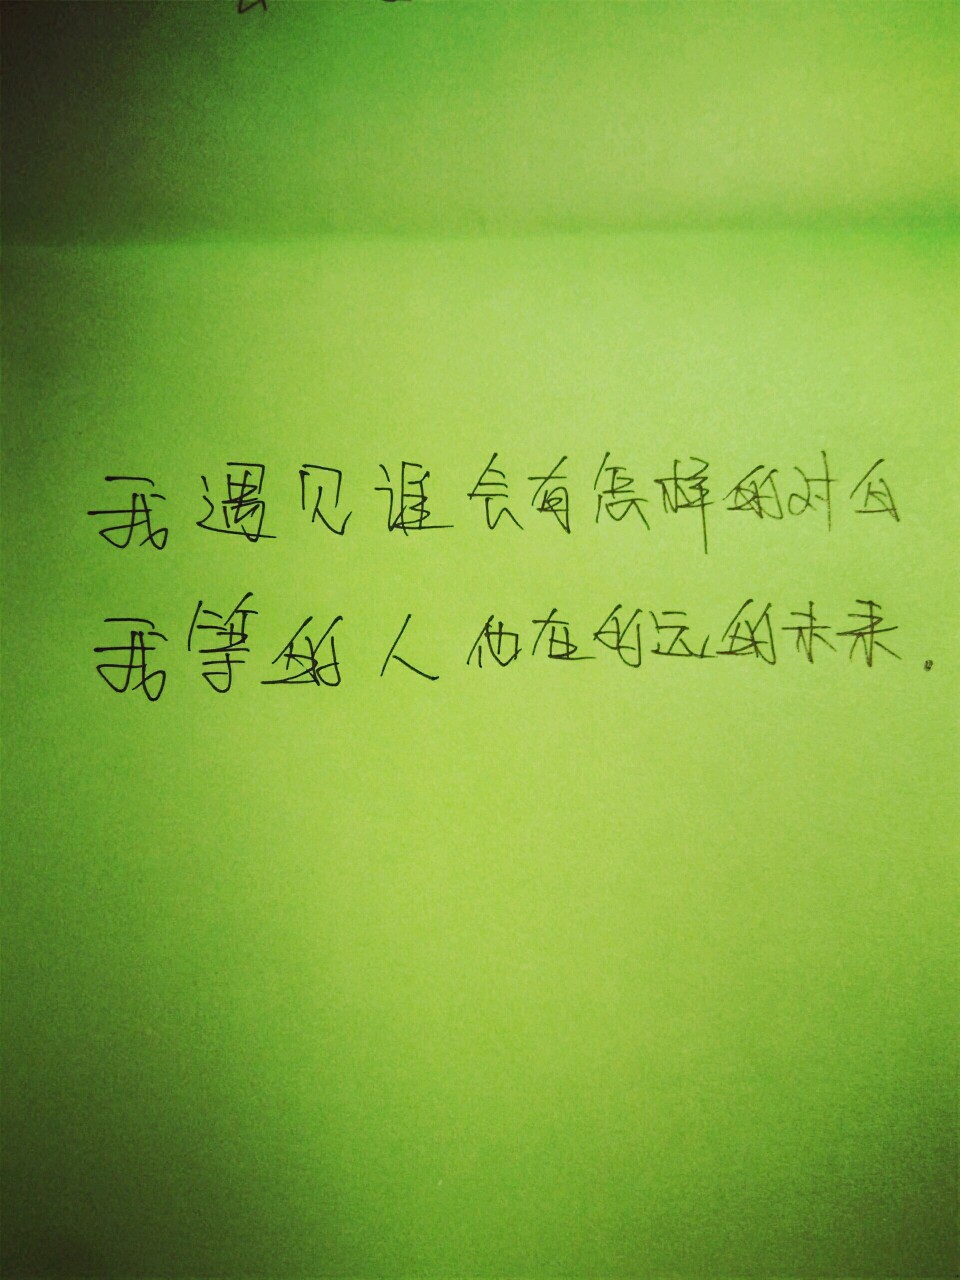 我遇见谁会有怎样的对白
我等的人他在的远的未来.